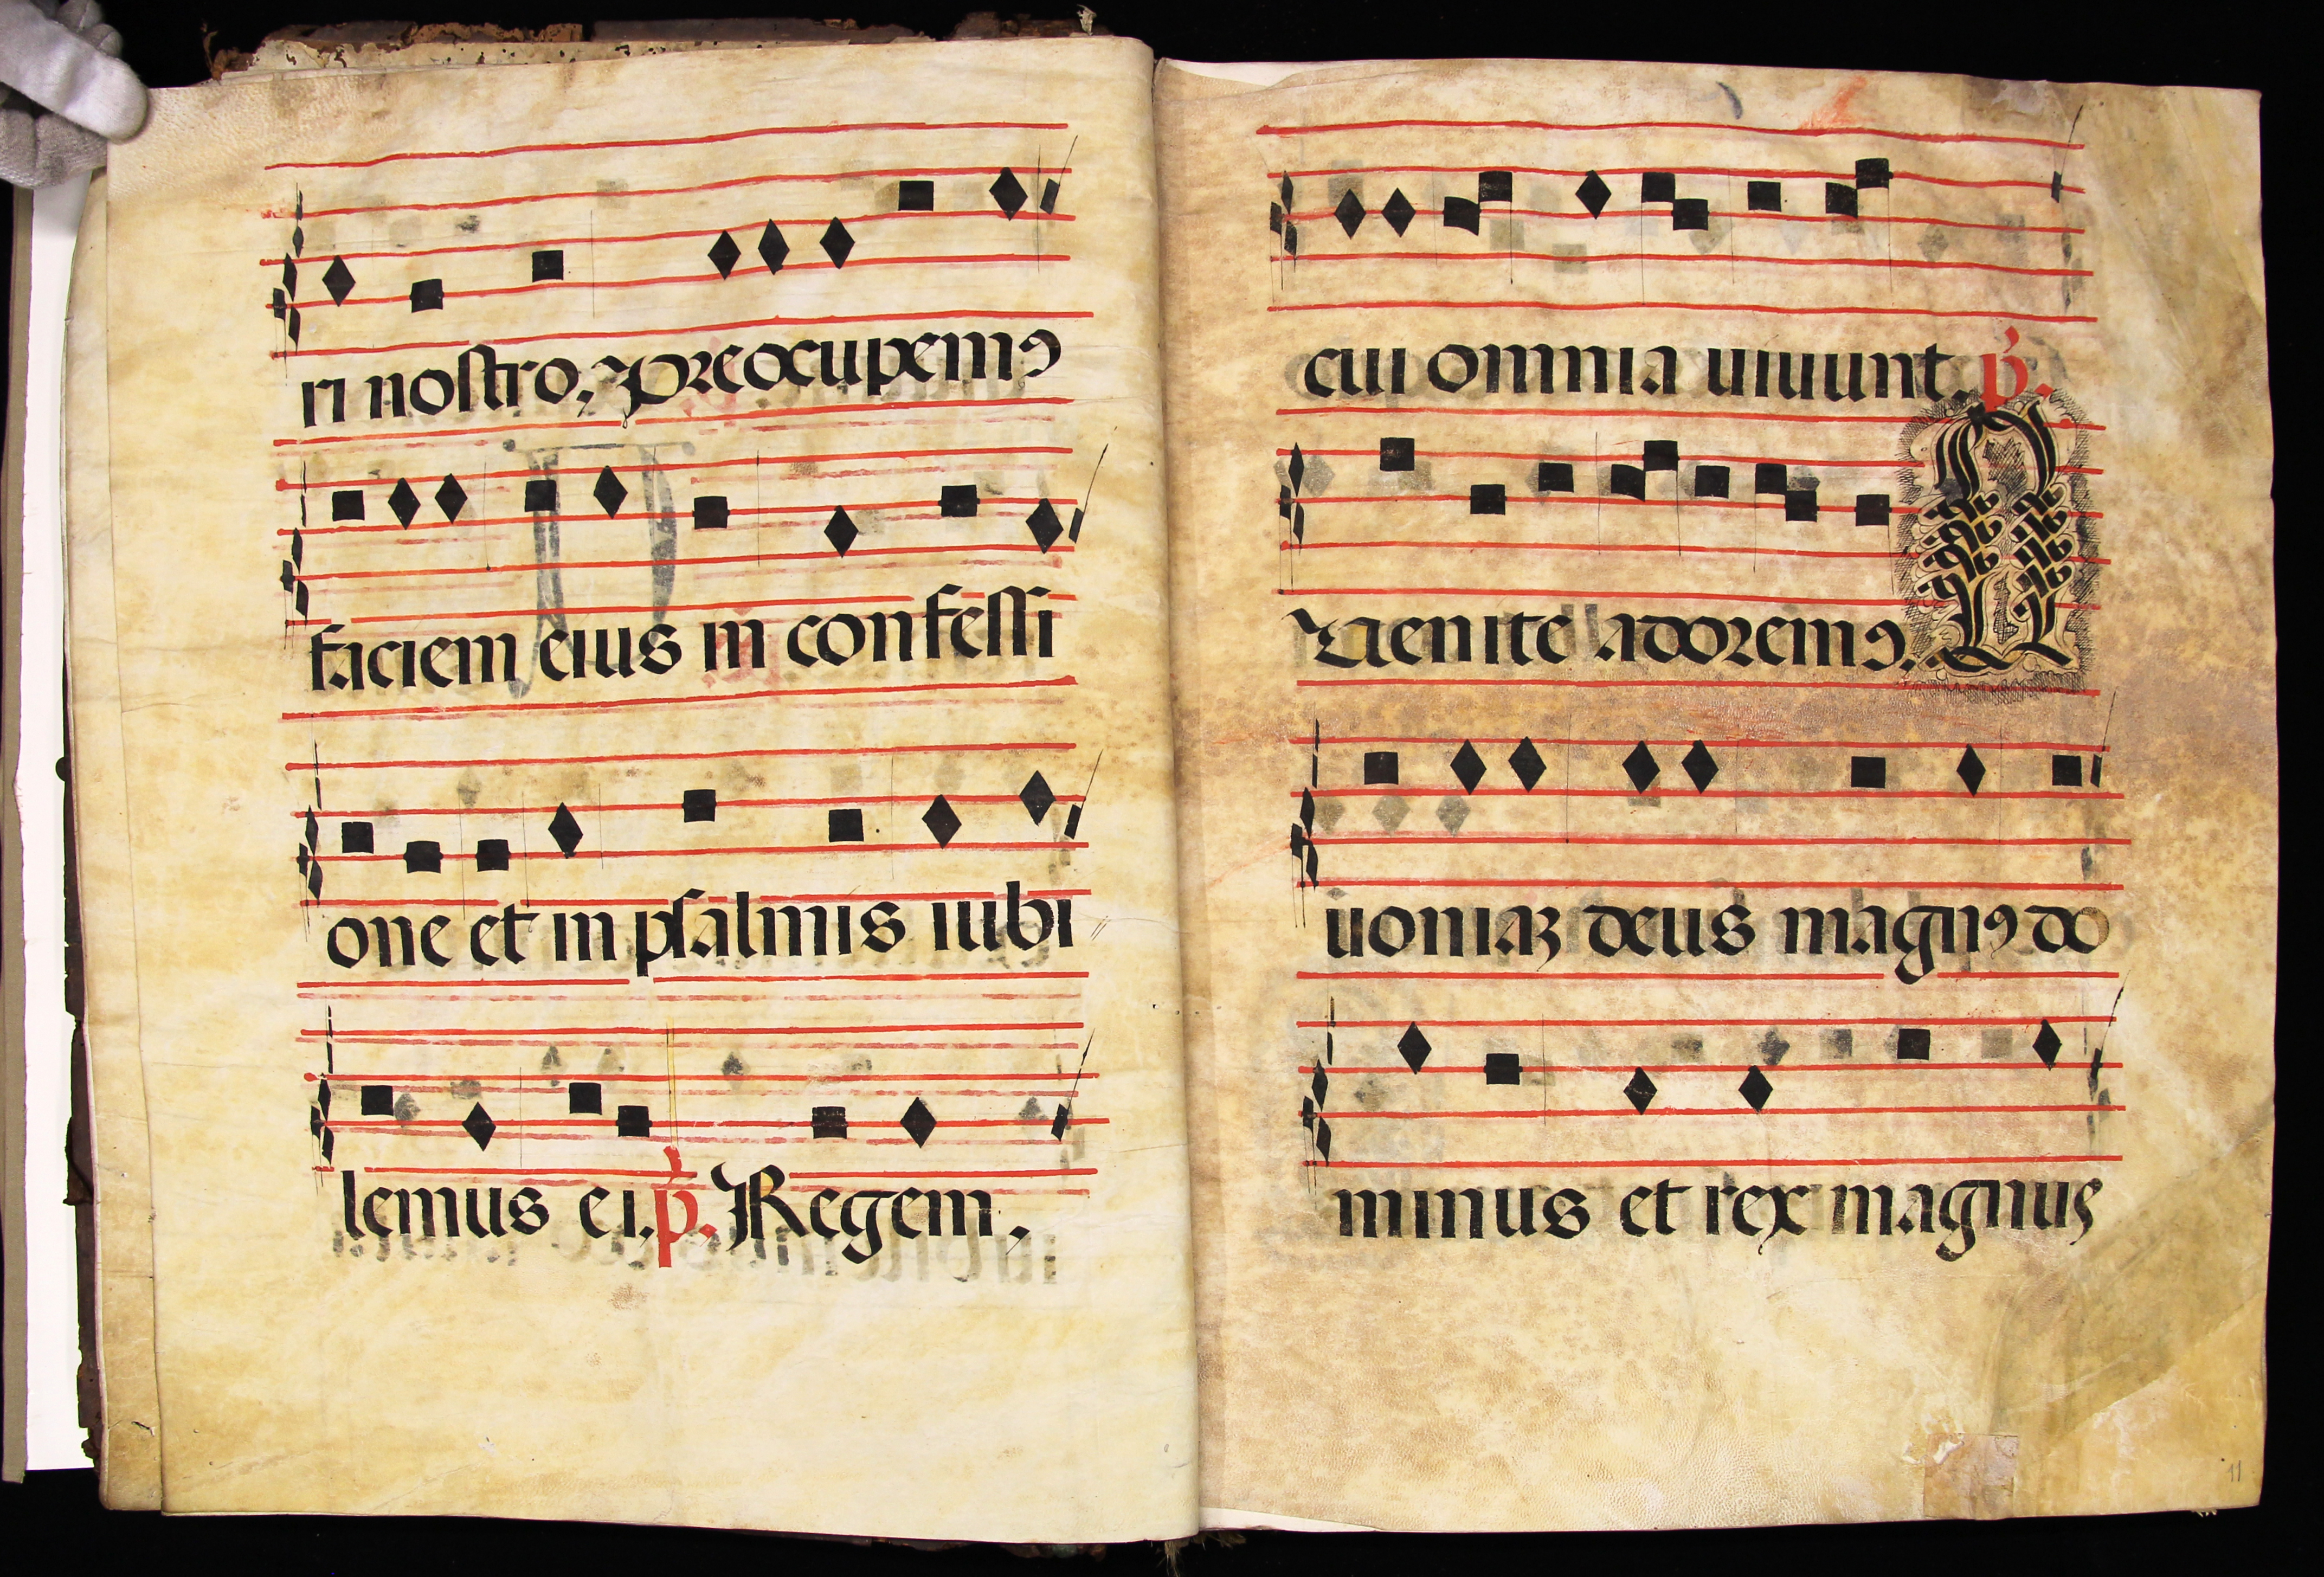 ri nostro, preocupemꝰ
faciem eius in confessi
one et in psalmis iubi
lemus ei. p̄. Regem,
cui omnia uiuunt. p̄.
Uenite adoremꝰ. Q
uoniaꝫ deus magnꝰ do
minus et rex magnus
11